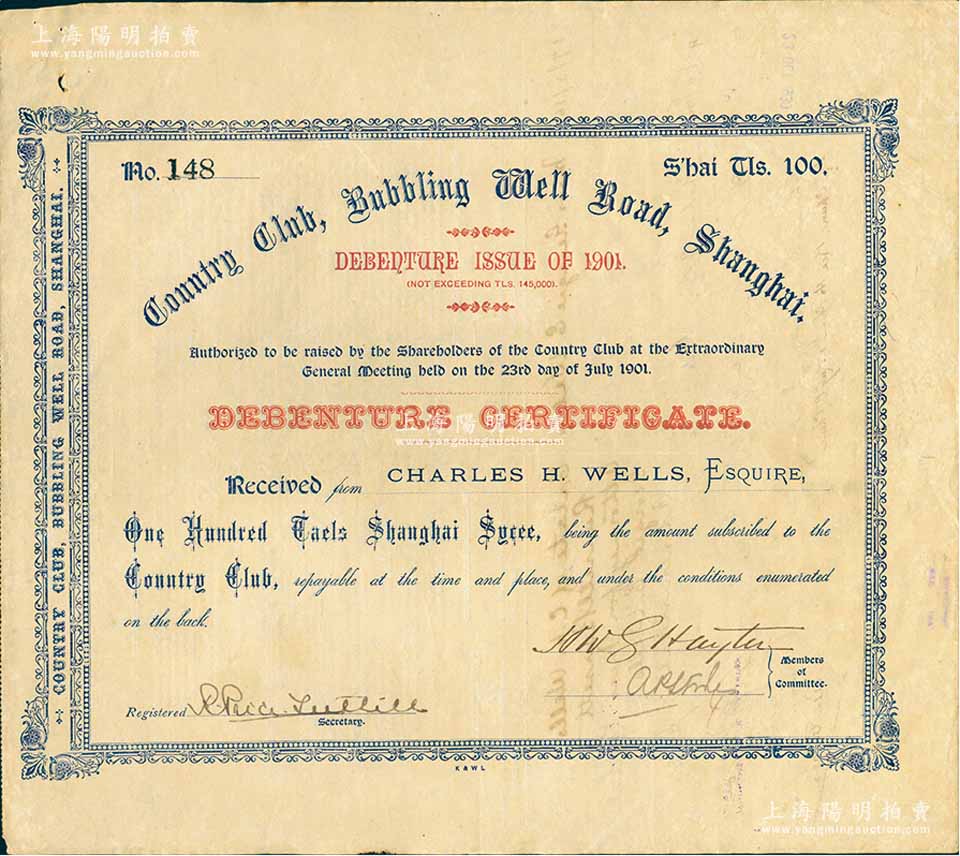 上海陽明拍賣
www.yangmingauction.com
No. 148
S'hai Tls. 100.
Country Club, Bubbling Well Road, Shanghai.
DEBENTURE ISSUE OF 1901.
(NOT EXCEEDING TLS. 145,000).
Authorized to be raised by the Shareholders of the Country Club at the Extraordinary
General Meeting held on the 23rd day of July 1901.
DEBENTURE CERTIFICATE.
上海陽明拍賣
www.yangmingauction.com
Received from CHARLES H. WELLS, ESQUIRE,
One Hundred Taels Shanghai Sycee, being the amount subscribed to the
Country Club, repayable at the time and place, and under the conditions enumerated
on the back.
Members
of
Committee.
Registered
Secretary.
K & W L
COUNTRY CLUB, BUBBLING WELL ROAD, SHANGHAI.
上海陽明拍賣
www.yangmingauction.com